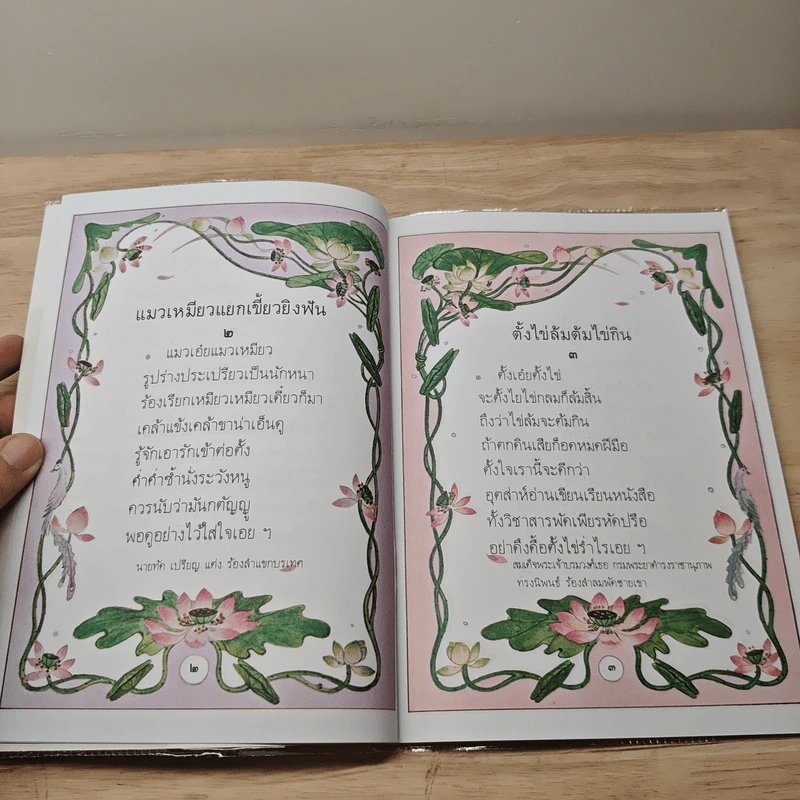 แมวเหมียวแยกเขี้ยวยิงฟัน
๒
๏ แมวเอ๋ยแมวเหมียว
รูปร่างประเปรียวเป็นนักหนา
ร้องเรียกเหมียวเหมียวเดี๋ยวก็มา
เคล้าแข้งเคล้าขาน่าเอ็นดู
รู้จักเอารักเข้าต่อตั้ง
ค่ำค่ำซ้ำนั่งระวังหนู
ควรนับว่ามันกตัญญู
พอดูอย่างไว้ใส่ใจเอย ฯ
นายทัด เปรียญ แต่ง ร้องลำแขกบรเทศ
๒
ตั้งไข่ล้มต้มไข่กิน
๓
๏ ตั้งเอ๋ยตั้งไข่
จะตั้งใยไข่กลมก็ล้มสิ้น
ถึงว่าไข่ล้มจะต้มกิน
ถ้าตกดินเสียก็อดหมดฝีมือ
ตั้งใจเรานี้จะดีกว่า
อุตส่าห์อ่านเขียนเรียนหนังสือ
ทั้งวิชาสารพัดเพียรหัดปรือ
อย่าดึงดื้อตั้งไข่ร่ำไรเอย ฯ
สมเด็จพระเจ้าบรมวงศ์เธอ กรมพระยาดำรงราชานุภาพ
ทรงนิพนธ์ ร้องลำลมพัดชายเขา
๓